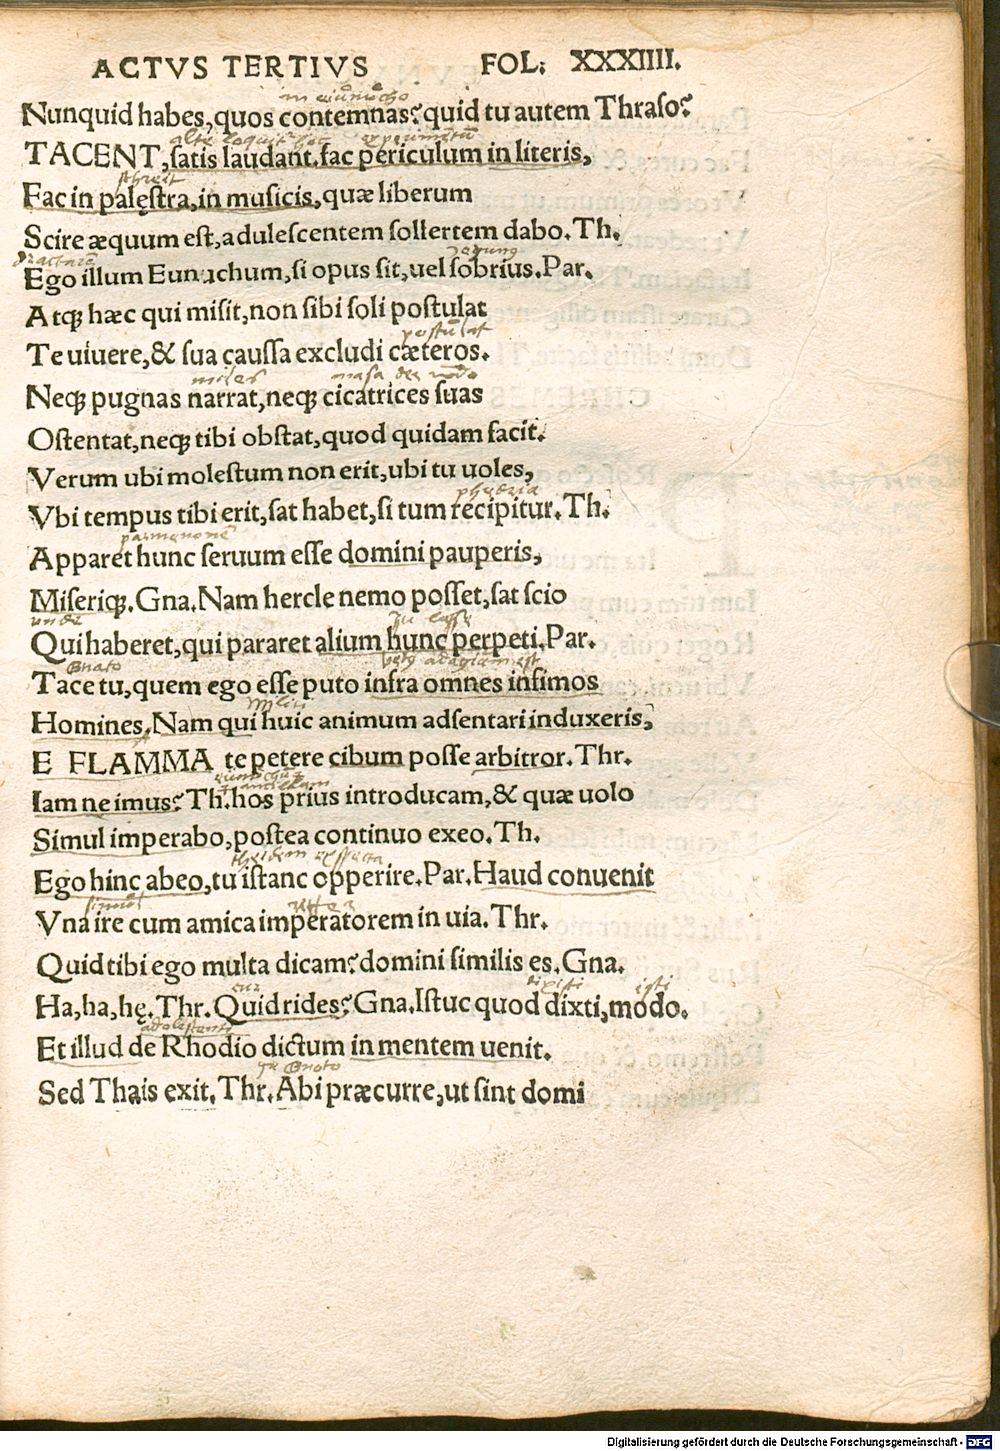 ACTVS TERTIVS FOL: XXXIIII.
Nunquid habes, quos contemnas? quid tu autem Thraso?
TACENT, satis laudant. fac periculum in literis,
Fac in palęstra, in musicis, quæ liberum
Scire æquum est, adulescentem sollertem dabo. Th.
Ego illum Eunuchum, si opus sit, uel sobrius. Par.
Atqꝫ hæc qui misit, non sibi soli postulat
postulat
Te uiuere, & sua caussa excludi cæteros.
miles
Neqꝫ pugnas narrat, neqꝫ cicatrices suas
Ostentat, neqꝫ tibi obstat, quod quidam facit.
Verum ubi molestum non erit, ubi tu uoles,
phedria
Vbi tempus tibi erit, sat habet, si tum recipitur. Th.
parmenonē
Apparet hunc seruum esse domini pauperis,
Miseriqꝫ. Gna. Nam hercle nemo posset, sat scio
unde
Qui haberet, qui pararet alium hunc perpeti. Par.
Gnato
Tace tu, quem ego esse puto infra omnes infimos
militi
Homines. Nam qui huic animum adsentari induxeris,
E FLAMMA te petere cibum posse arbitror. Thr.
Iam ne imus? Th. hos prius introducam, & quæ uolo
Simul imperabo, postea continuo exeo. Th.
Ego hinc abeo, tu istanc opperire. Par. Haud conuenit
simul
Vna ire cum amica imperatorem in uia. Thr.
Quid tibi ego multa dicam? domini similis es. Gna.
dixisti
isti
Ha, ha, hę. Thr. Quid rides? Gna. Istuc quod dixti, modo.
cur
adolescente
Et illud de Rhodio dictum in mentem uenit.
Gnato
Sed Thais exit. Thr. Abi præcurre, ut sint domi
Digitalisierung gefördert durch die Deutsche Forschungsgemeinschaft - DFG